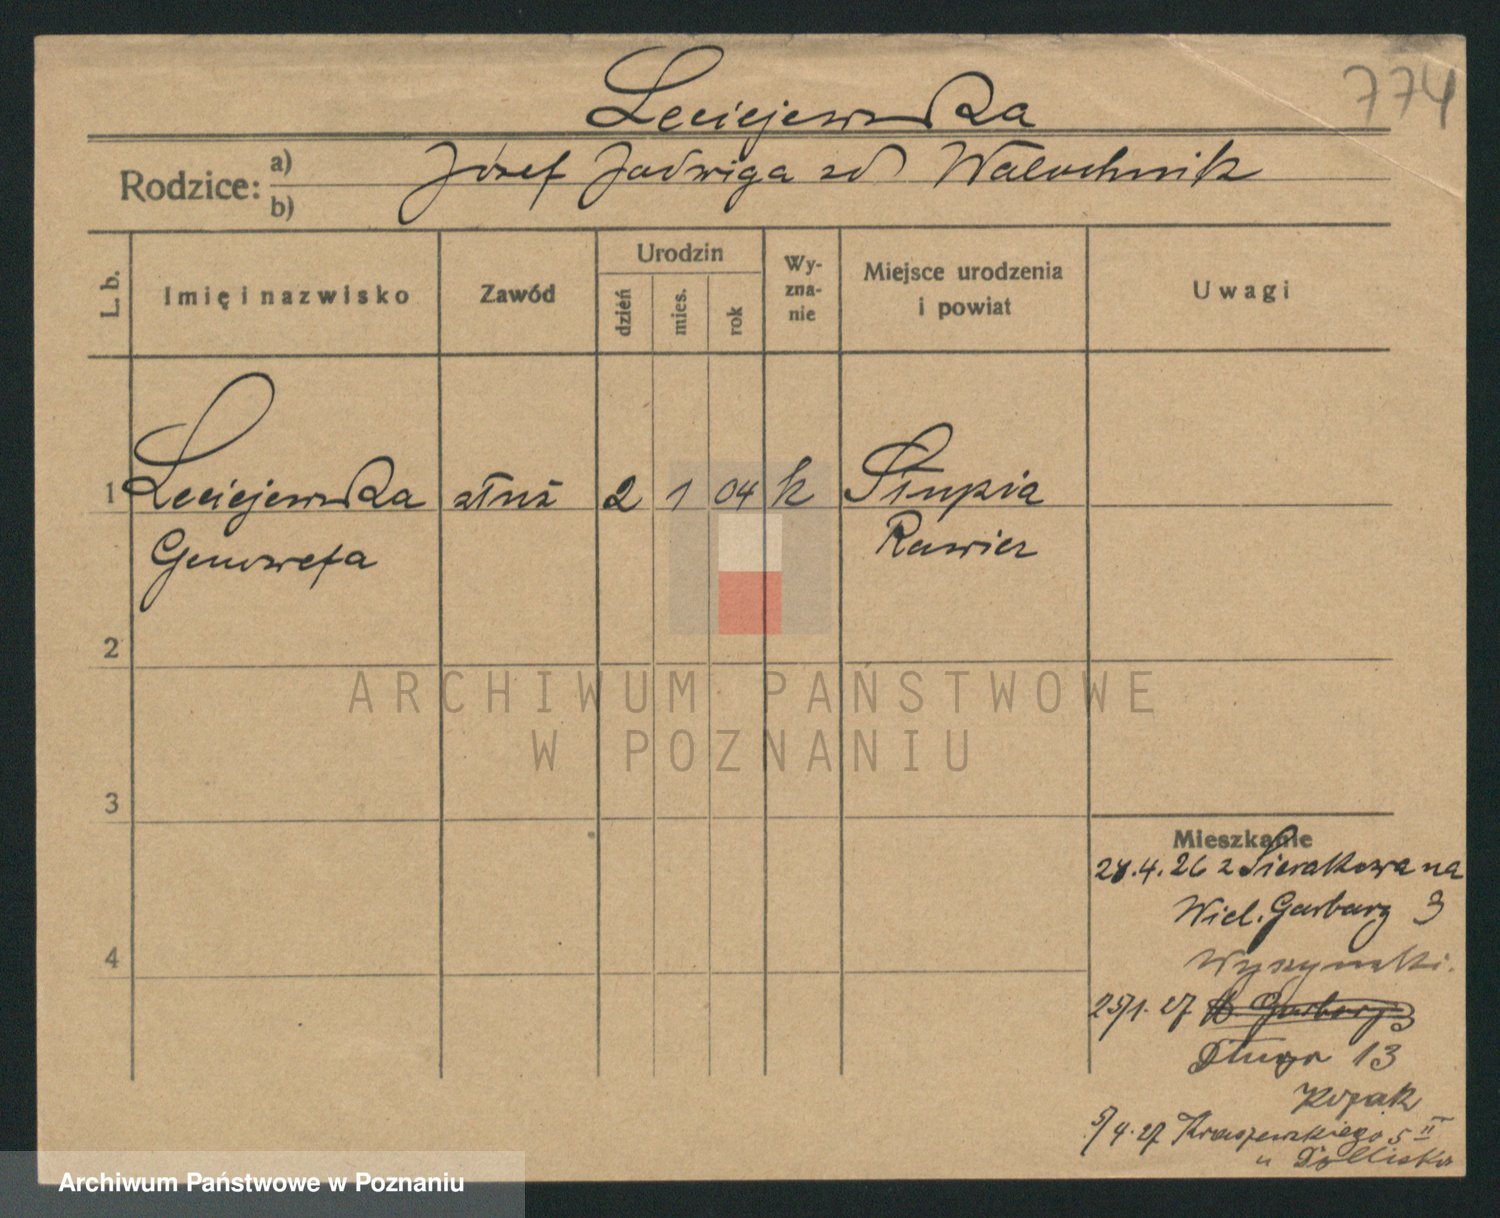 774
Leciejewska
Rodzice: a) Józef Jadwiga zd Walochnik
b)
L. b. Imię i nazwisko Zawód Urodzin dzień mies. rok Wy-zna-nie Miejsce urodzenia i powiat Uwagi
1 Leciejewska służ 2 1 04 k Słupia
Genowefa Rawicz
2
ARCHIWUM PAŃSTWOWE
W POZNANIU
3
Mieszkanie
28.4.26 z Sierakowa na
Wiel. Garbary 3
Wyszynski.
4
25/1.27 W Garbary 3
Długa 13
Kozak
5/4.27 Kraszewskiego 5 II
u
Archiwum Państwowe w Poznaniu